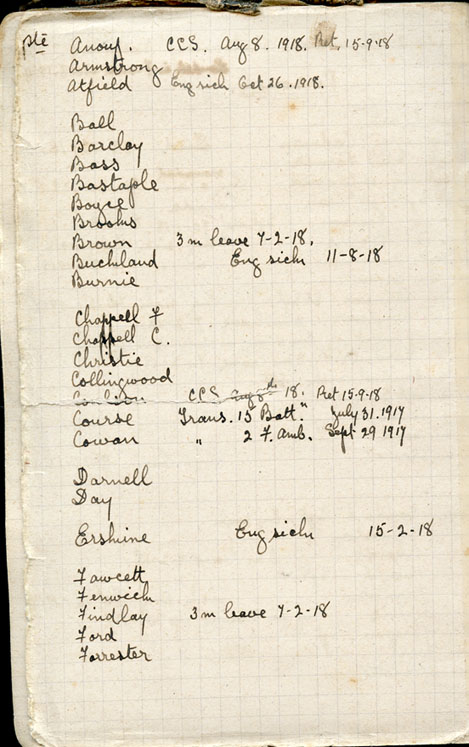 Pte Anouf. CCS. Aug 8. 1918. Ret. 15-9-18
Armstrong
Atfield Eng sick Oct 26. 1918.
Ball
Barclay
Bass
Bastaple
Boyce
Brooks
Brown 3 m leave 7-2-18.
Buckland Eng sick 11-8-18
Burnie
Chappell F
Chappell C.
Christie
Collingwood
CCS Aug 8th 18. Ret 15-9-18
Course Trans. 15 Batt. July 31. 1917
Cowan " 2 F. Amb. Sept 29 1917
Darnell
Day
Erskine Eng sick 15-2-18
Fawcett
Fenwick
Findlay 3 m leave 7-2-18
Ford
Forrester